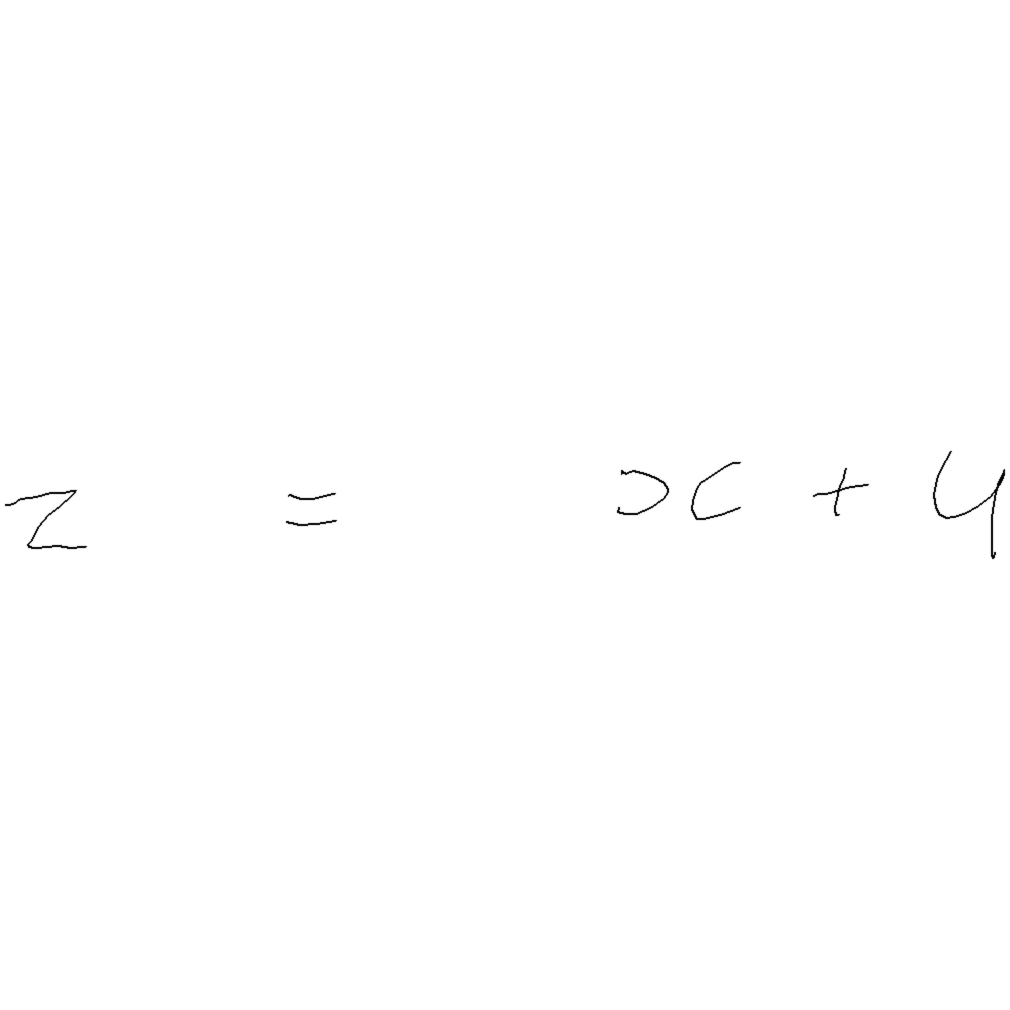 z = x + y